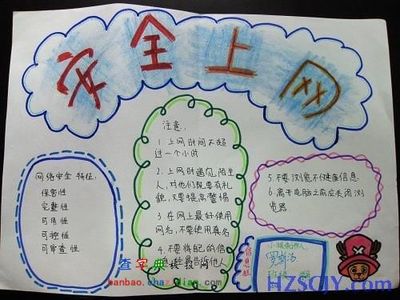 安全上网
网络安全 特征:
保密性
完整性
可用性
可控性
可审查性
注意:
1 上网时间不超
过一个小时
2.上网时遇见陌生
人,对他们既要有礼
貌,又要提高警惕
3.在网上最好使用
网名,不要使用真名
4.不要将自己的信
息
告诉他人
5.不要浏览不健康信息
6.离开电脑之前应关闭浏
览器
查字典教技网
banbao.chazidian.com
HZSCIY.COM